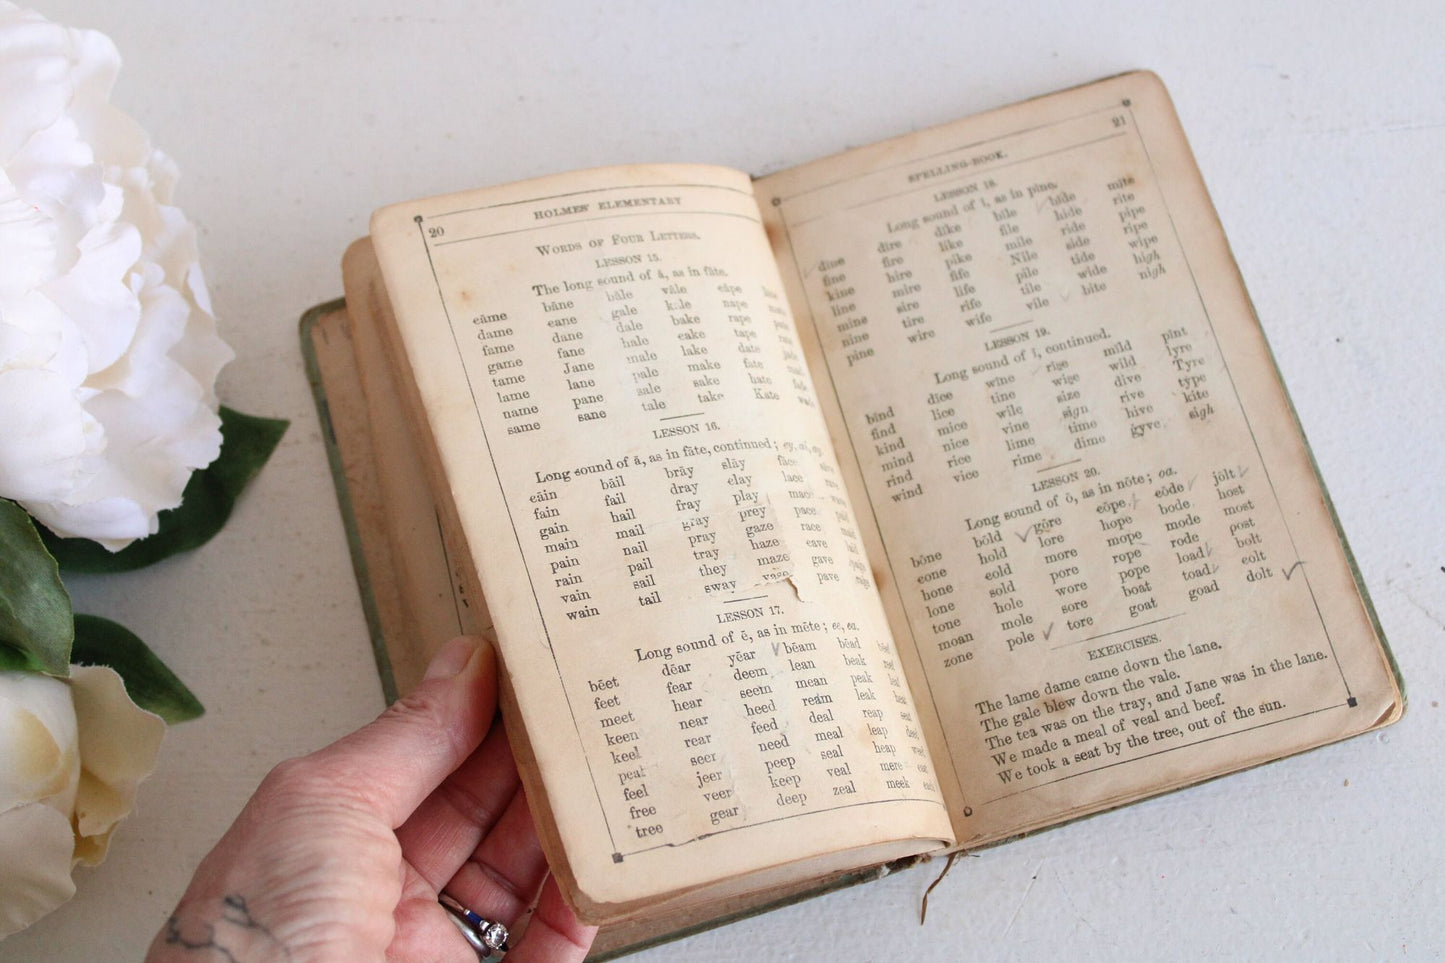 20 HOLMES' ELEMENTARY
WORDS OF FOUR LETTERS.
LESSON 15.
The long sound of ā, as in fāte.
cāme bāne bāle vāle cāpe
dame cane gale kale nape
fame dane dale bake rape
game fane hale cake tape
tame Jane male lake date
lame lane pale make fate
name pane sale sake hate fade
same sane tale take Kate
LESSON 16.
Long sound of ā, as in fāte, continued; ey, ai, ay.
cāin bāil brāy slāy fāce
fain fail dray clay lace
gain hail fray play mace
main mail gray prey pace
pain nail pray gaze race
rain pail tray haze cave
vain sail they maze gave
wain tail sway vase pave
LESSON 17.
Long sound of ē, as in mēte; ee, ea.
bēet dēar yēar bēam bēad
feet fear deem lean beak
meet hear seem mean peak
keen near heed ream leak
keel rear feed deal reap seat
peat seer need meal leap
feel jeer peep seal heap
free veer keep veal mere
tree gear deep zeal meek
SPELLING-BOOK. 21
LESSON 18.
Long sound of ī, as in pīne.
dīne dīre dīke bīle bīde mīte
fine fire like file hide rite
kine hire pike mile ride pipe
line mire fife Nile side ripe
mine sire life pile tide wipe
nine tire rife tile wide high
pine wire wife vile bite nigh
LESSON 19.
Long sound of ī, continued.
bīnd dīce wīne rīse mīld pīnt
find lice tine wise wild lyre
kind mice wile size dive Tyre
mind nice vine sign rive type
rind rice lime time hive kite
wind vice rime dime gyve sigh
LESSON 20.
Long sound of ō, as in nōte; oa.
bōne bōld gōre cōpe cōde jōlt
cone hold lore hope bode host
hone cold more mope mode most
lone sold pore rope rode post
tone hole wore pope load bolt
moan mole sore boat toad colt
zone pole tore goat goad dolt
EXERCISES.
The lame dame came down the lane.
The gale blew down the vale.
The tea was on the tray, and Jane was in the lane.
We made a meal of veal and beef.
We took a seat by the tree, out of the sun.